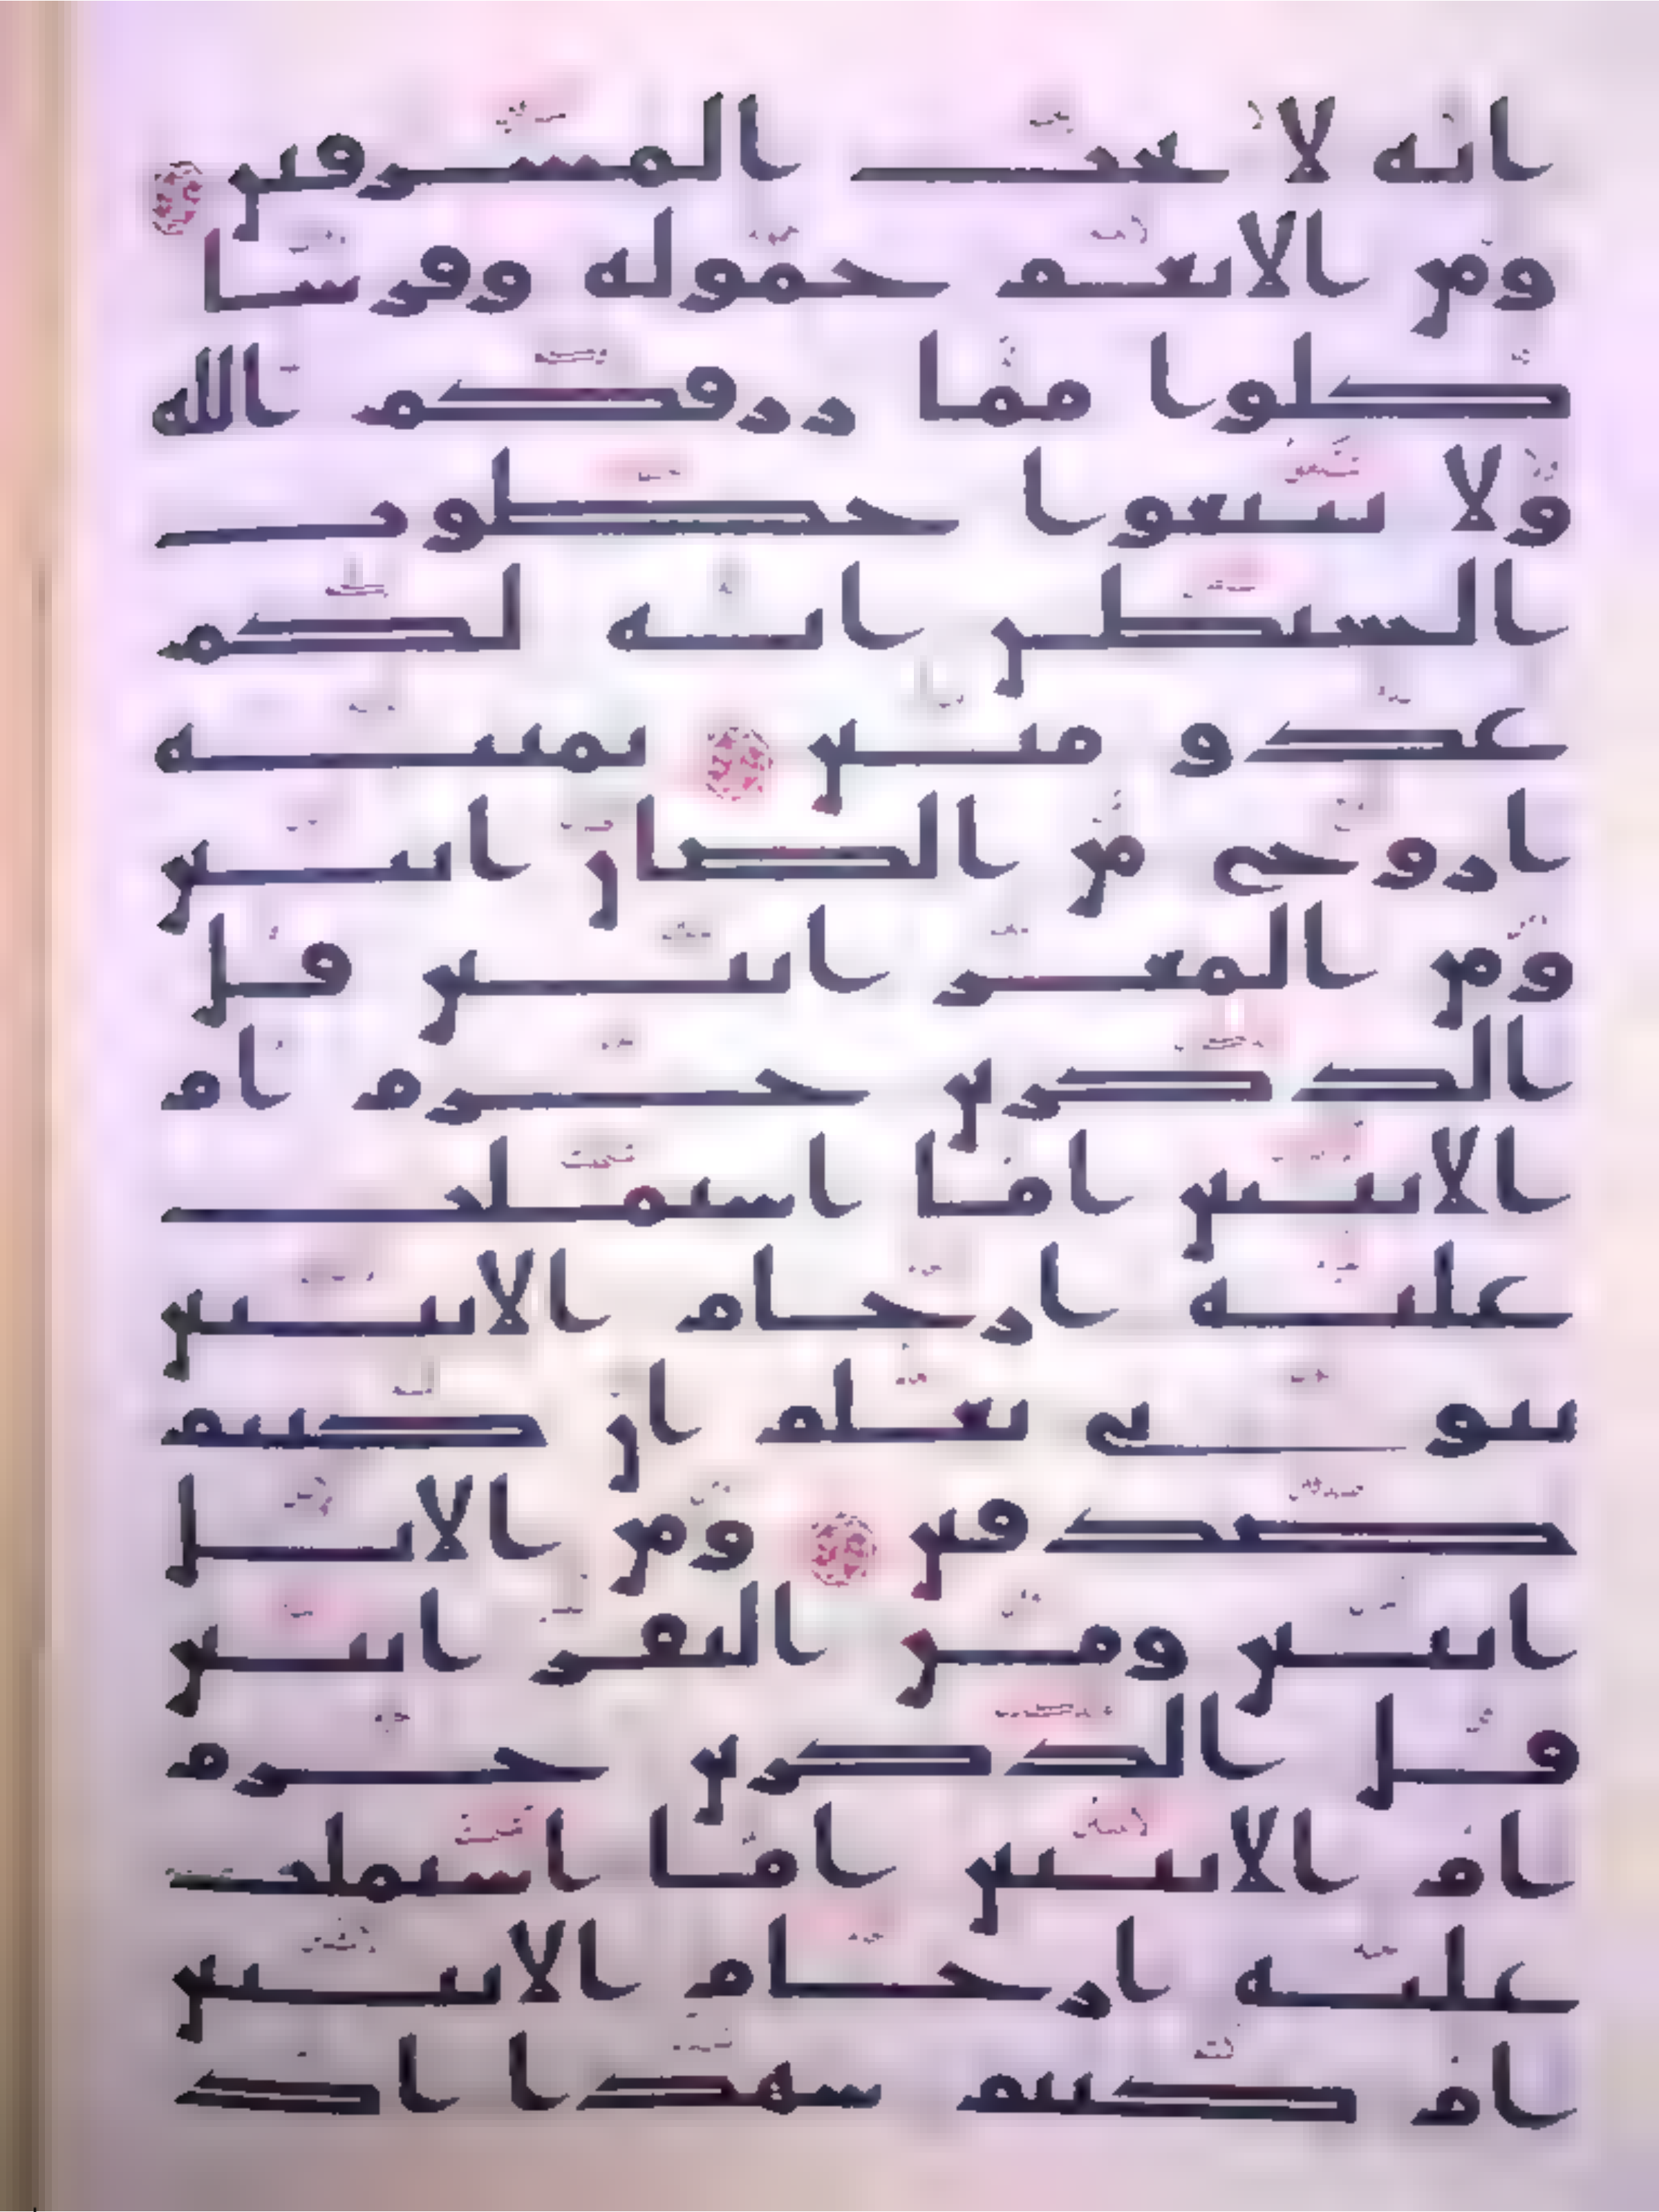 انه لا يحب المسرفين
ومن الانعم حموله وفرشا
كلوا مما رزقكم الله
ولا تتبعوا خطوت
الشيطن انه لكم
عدو مبين ثمنيه
ازوج من الضان اثنين
ومن المعز اثنين قل
الذكرين حرم ام
الانثيين اما اشتملت
عليه ارحام الانثيين
نبوني بعلم ان كنتم
صدقين ومن الابل
اثنين ومن البقر اثنين
قل الذكرين حرم
ام الانثيين اما اشتملت
عليه ارحام الانثيين
ام كنتم شهدا اذ